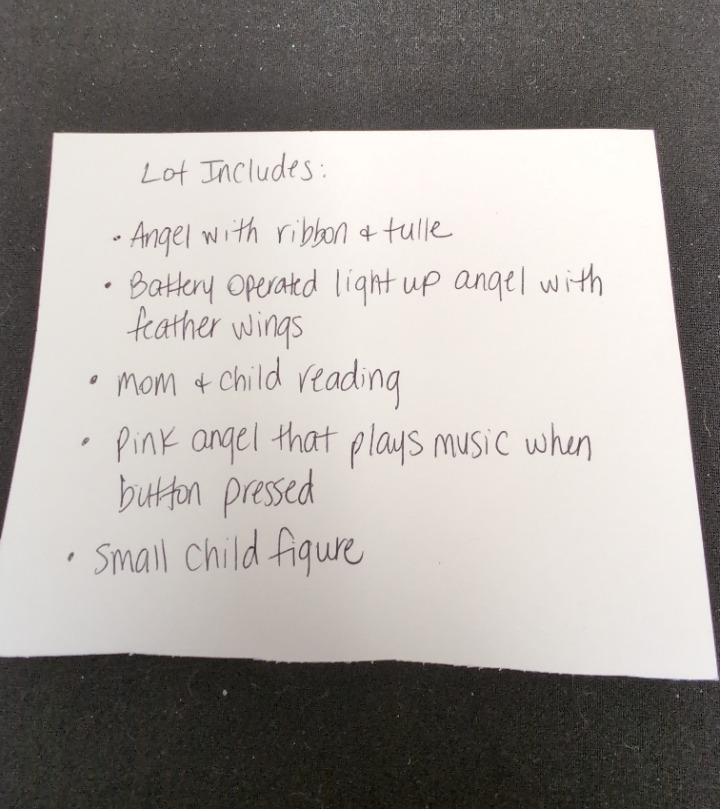 Lot Includes:
• Angel with ribbon & tulle
• Battery operated light up angel with
feather wings
• mom & child reading
• pink angel that plays music when
button pressed
• small child figure